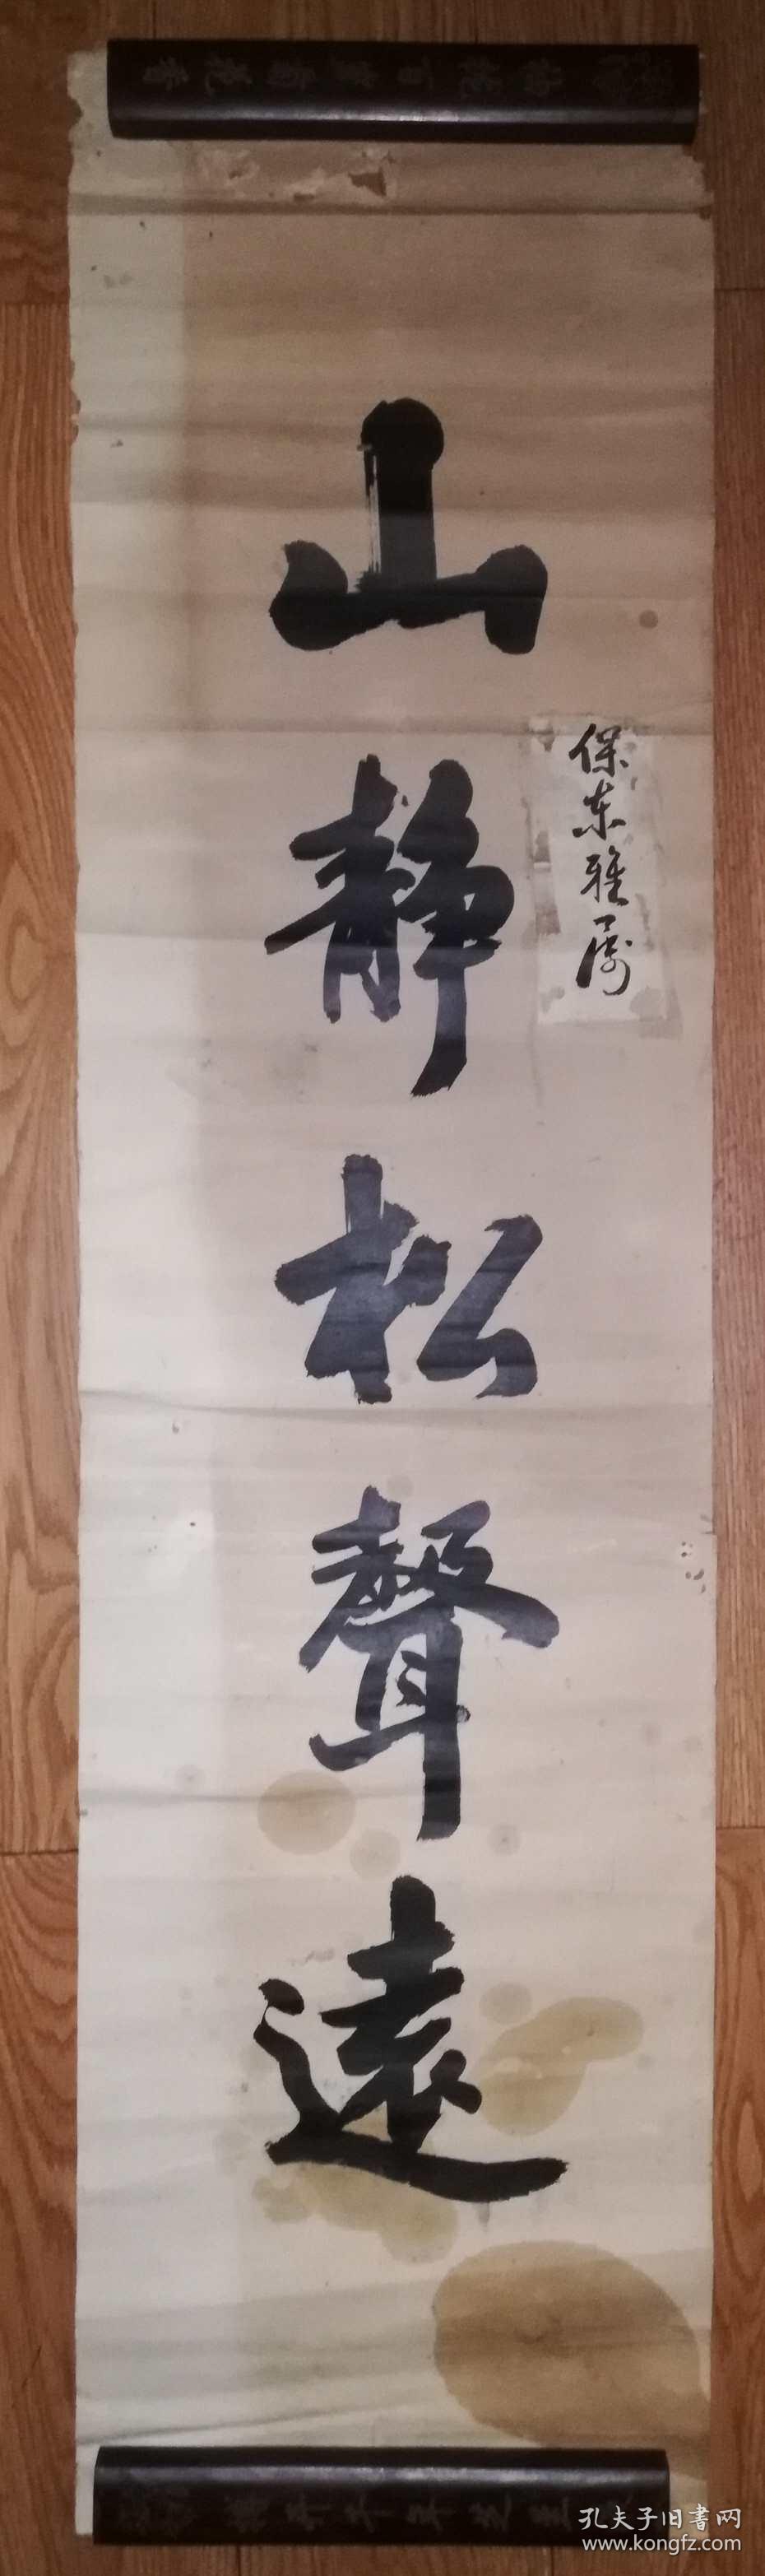 保东雅属
山静松聲遠
孔夫子旧書网
www.kongfz.com